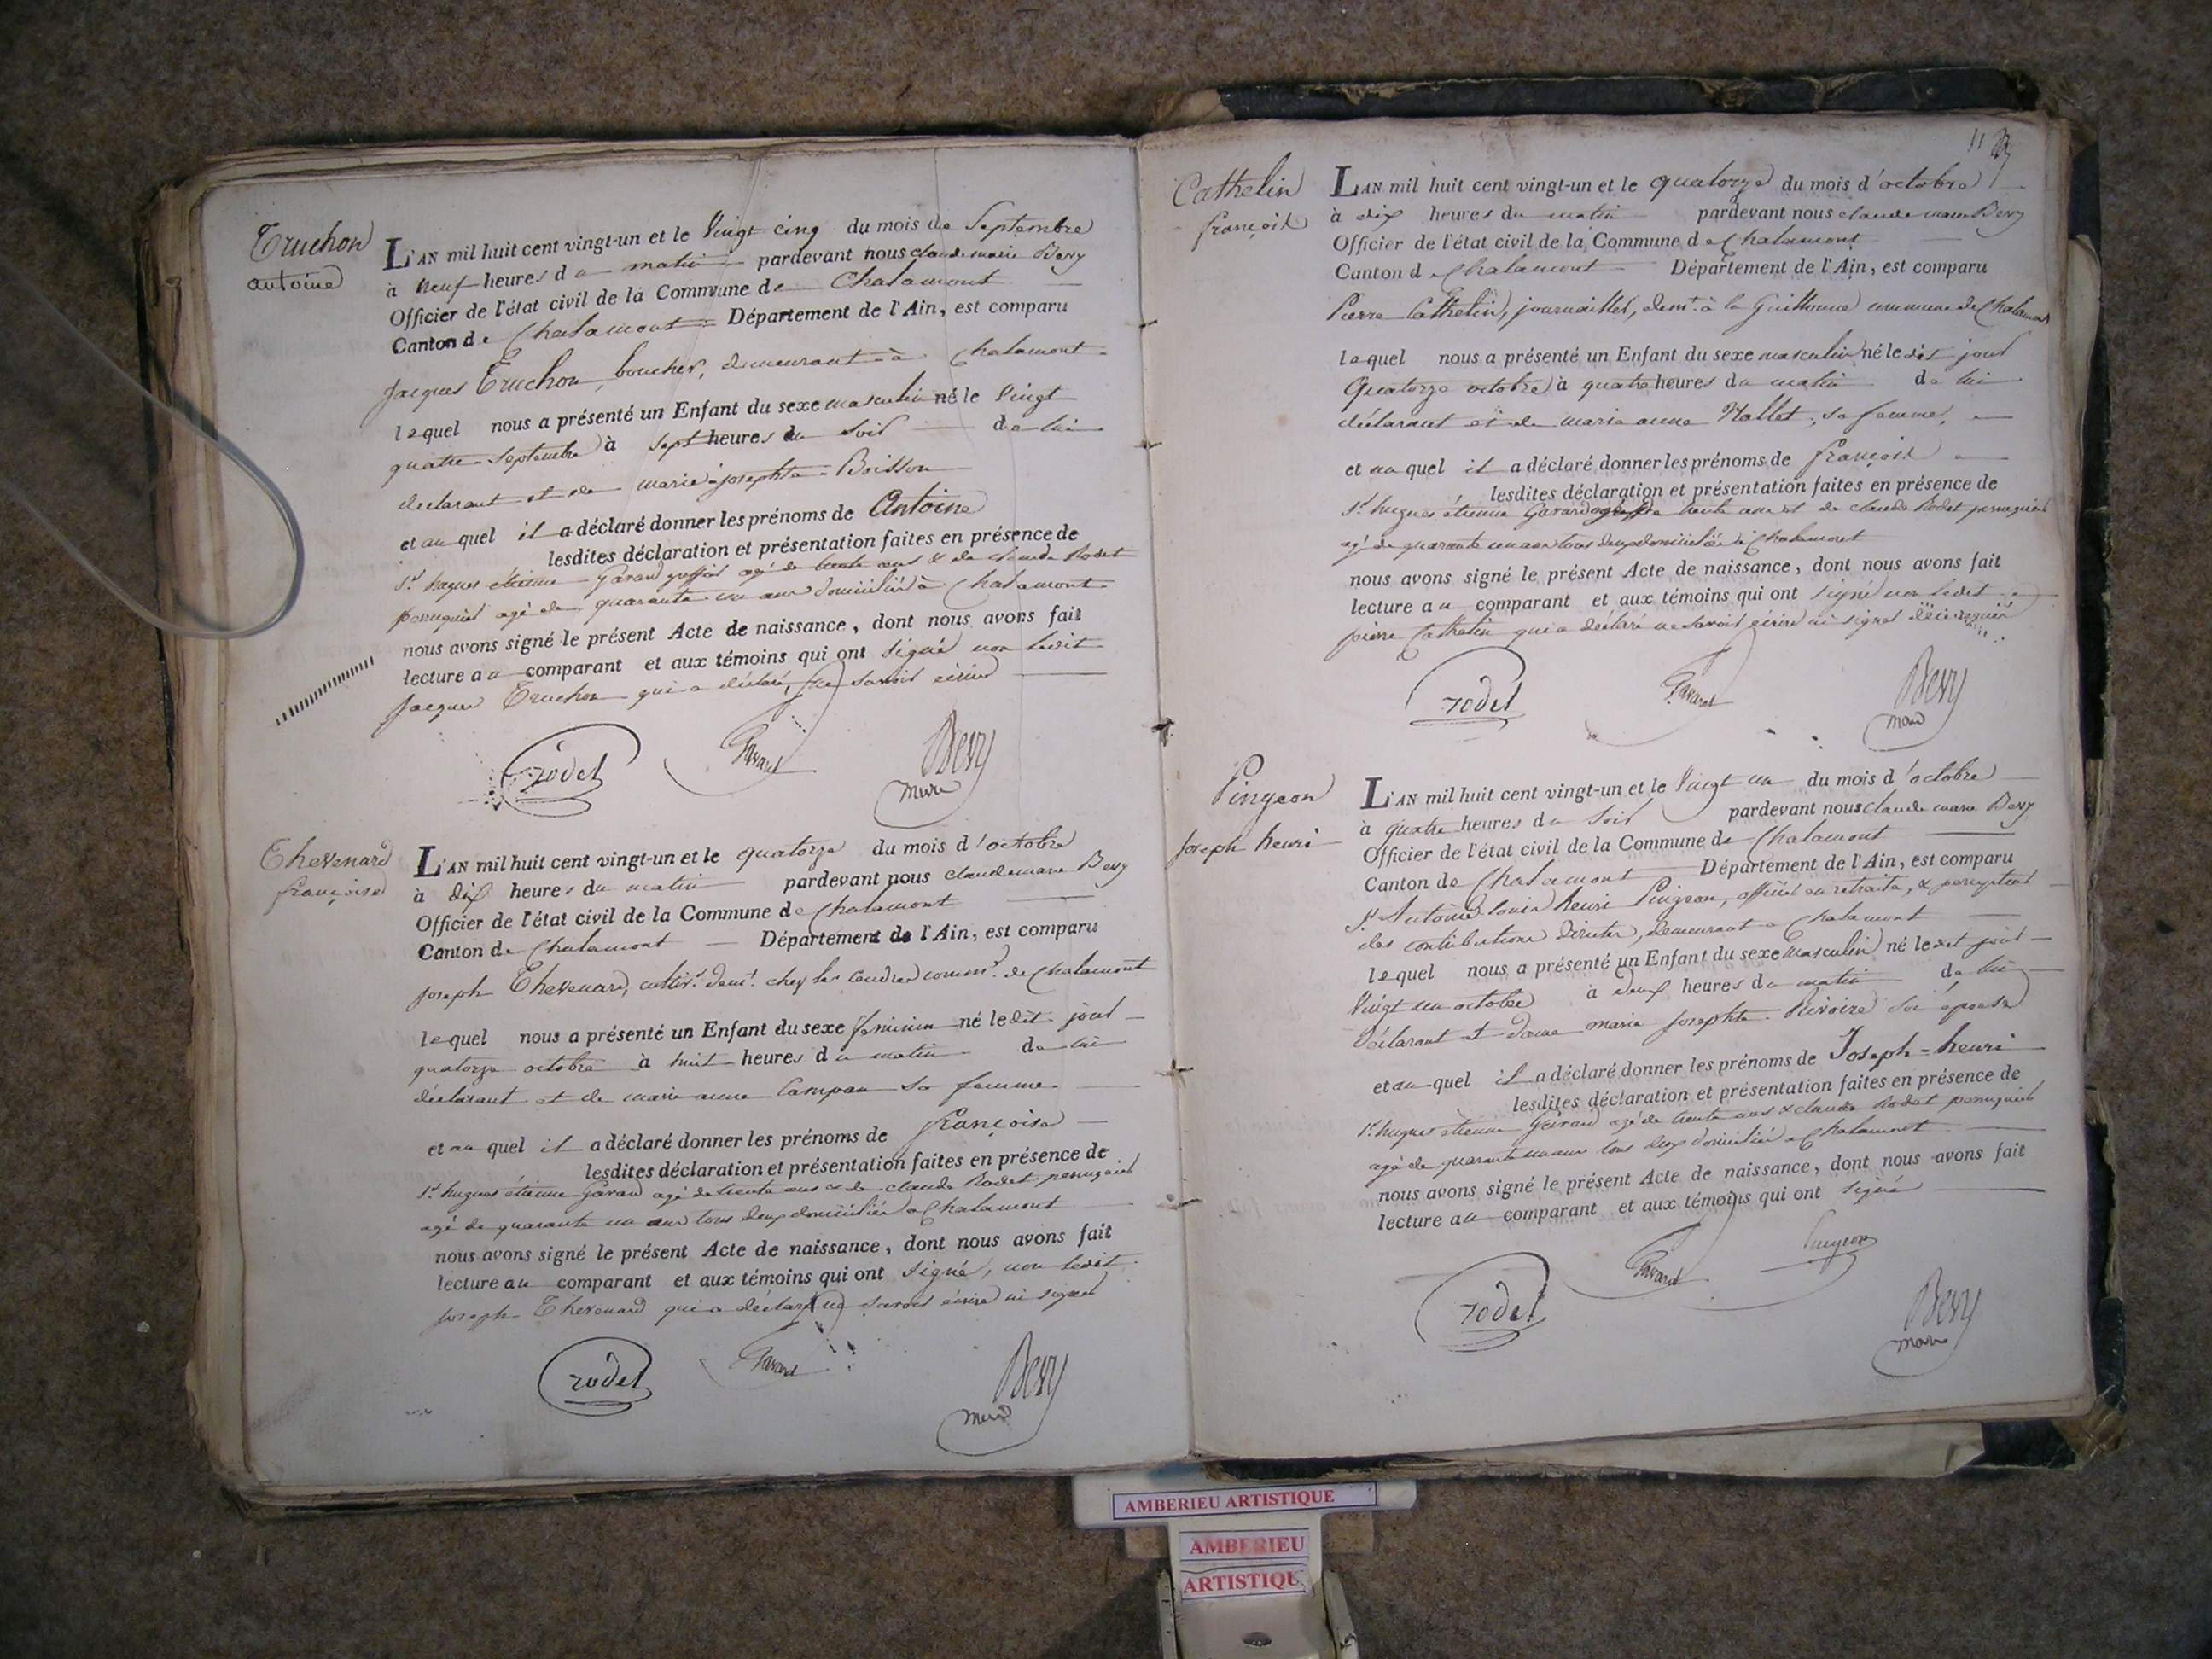 Truchon
antoine
L'AN mil huit cent vingt-un et le Vingt cinq du mois de Septembre
à neuf heures du matin pardevant nous claude marie Bevy
Officier de l'état civil de la Commune de Chalamont
Canton de Chalamont Département de l'Ain, est comparu
Jacques Truchon, boucher, demeurant à Chalamont
lequel nous a présenté un Enfant du sexe masculin né le Vingt
quatre Septembre à sept heures du soir de lui
déclarant et de marie josephte Boisson
et au quel il a déclaré donner les prénoms de Antoine
lesdites déclaration et présentation faites en présence de
Sr. hugues étienne Gavard agé de trente ans & de claude Rodet
perruquier agé de quarante un ans domiciliés à Chalamont
nous avons signé le présent Acte de naissance, dont nous avons fait
lecture au comparant et aux témoins qui ont signé non ledit
Jacques Truchon qui a déclaré ne savoir écrire
rodet Gavard Bevy
maire
Thevenard
françoise
L'AN mil huit cent vingt-un et le quatorze du mois d'octobre
à dix heures du matin pardevant nous claude marie Bevy
Officier de l'état civil de la Commune de Chalamont
Canton de Chalamont Département de l'Ain, est comparu
joseph Thevenard, cultivr. demt. chez les commne. de Chalamont
lequel nous a présenté un Enfant du sexe feminin né le dit jour
quatorze octobre à huit heures du matin de lui
déclarant et de marie anne Campan sa femme
et au quel il a déclaré donner les prénoms de françoise
lesdites déclaration et présentation faites en présence de
Sr. hugues étienne Gavard agé de trente ans & de claude Rodet perruquier
agé de quarante un ans tous deux domiciliés à Chalamont
nous avons signé le présent Acte de naissance, dont nous avons fait
lecture au comparant et aux témoins qui ont signé, non ledit
joseph Thevenard qui a déclaré ne savoir écrire ni signer
rodet Gavard Bevy
maire
11
Cathelin
françois
L'AN mil huit cent vingt-un et le quatorze du mois d'octobre
à dix heures du matin pardevant nous claude marie Bevy
Officier de l'état civil de la Commune de Chalamont
Canton de Chalamont Département de l'Ain, est comparu
Pierre Cathelin, journaillier, demt. à la commune de Chalamont
lequel nous a présenté un Enfant du sexe masculin né le dit jour
Quatorze octobre à quatre heures du matin de lui
déclarant et de marie anne Hallet, sa femme,
et au quel il a déclaré donner les prénoms de françois
lesdites déclaration et présentation faites en présence de
Sr. hugues étienne Gavard agé de trente ans et de claude Rodet perruquier
agé de quarante un ans tous deux domiciliés à Chalamont
nous avons signé le présent Acte de naissance, dont nous avons fait
lecture au comparant et aux témoins qui ont signé non ledit
pierre Cathelin qui a déclaré ne savoir écrire ni signer
rodet Gavard Bevy
maire
Pingeon
joseph henri
L'AN mil huit cent vingt-un et le Vingt un du mois d'octobre
à quatre heures du soir pardevant nous claude marie Bevy
Officier de l'état civil de la Commune de Chalamont
Canton de Chalamont Département de l'Ain, est comparu
Sr. Antoine louis henri Pingeon, officier en retraite, & percepteur
des contributions directes, demeurant à Chalamont
lequel nous a présenté un Enfant du sexe Masculin né le dit jour
Vingt un octobre à deux heures du matin de lui
Déclarant et dame marie josephte Rivoire son épouse
et au quel il a déclaré donner les prénoms de Joseph-henri
lesdites déclaration et présentation faites en présence de
Sr. hugues étienne Gavard agé de trente ans & claude Rodet perruquier
agé de quarante un ans tous deux domiciliés à Chalamont
nous avons signé le présent Acte de naissance, dont nous avons fait
lecture au comparant et aux témoins qui ont signé
rodet Gavard Pingeon Bevy
maire
AMBERIEU ARTISTIQUE
AMBERIEU
ARTISTIQU